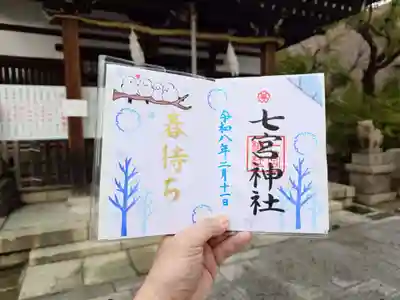 七宮神社
令和八年二月十一日
春待ち